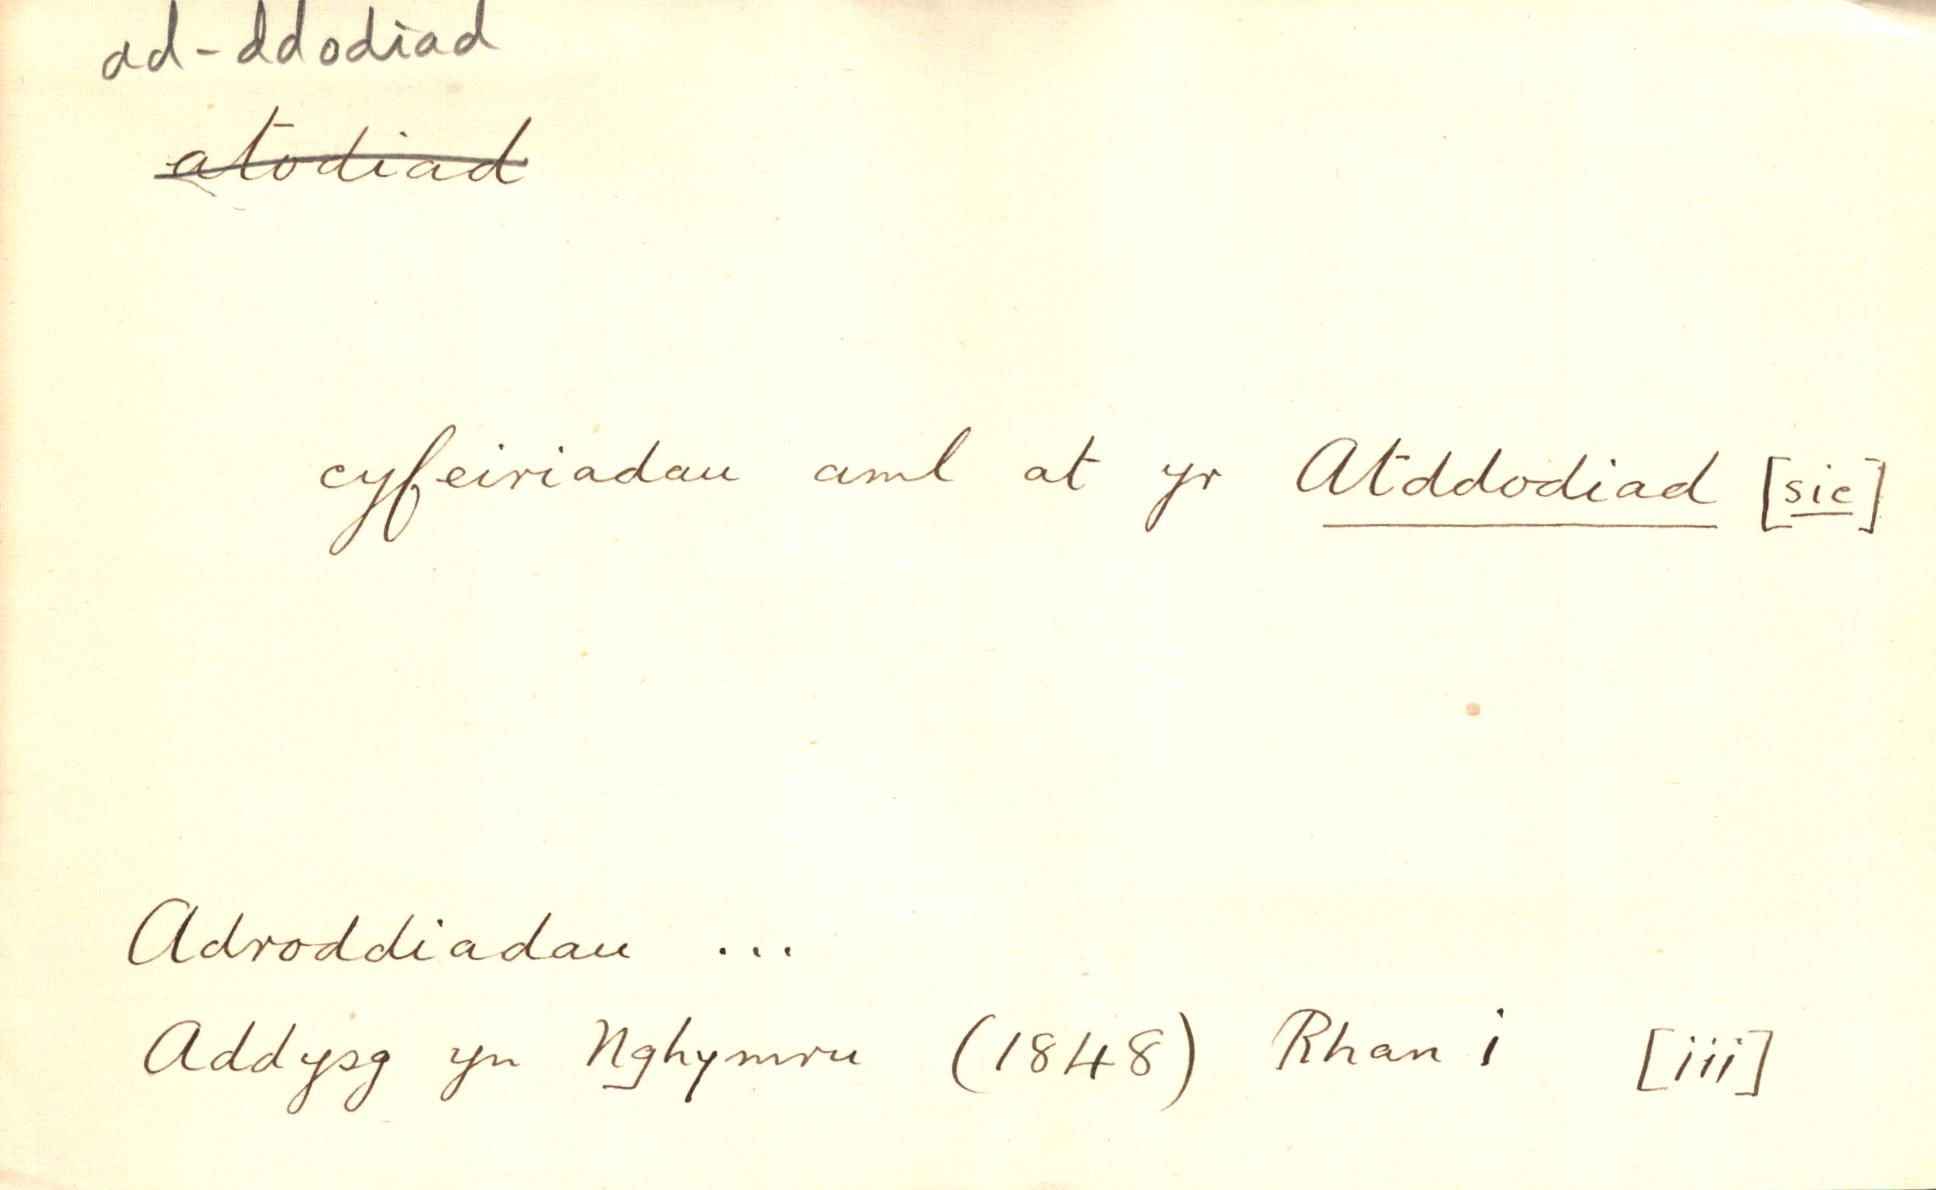 ad-ddodiad
atodiad
cyfeiriadau aml at yr Atddodiad [sic]
Adroddiadau ...
Addysg yn Nghymru (1848) Rhan i [iii]